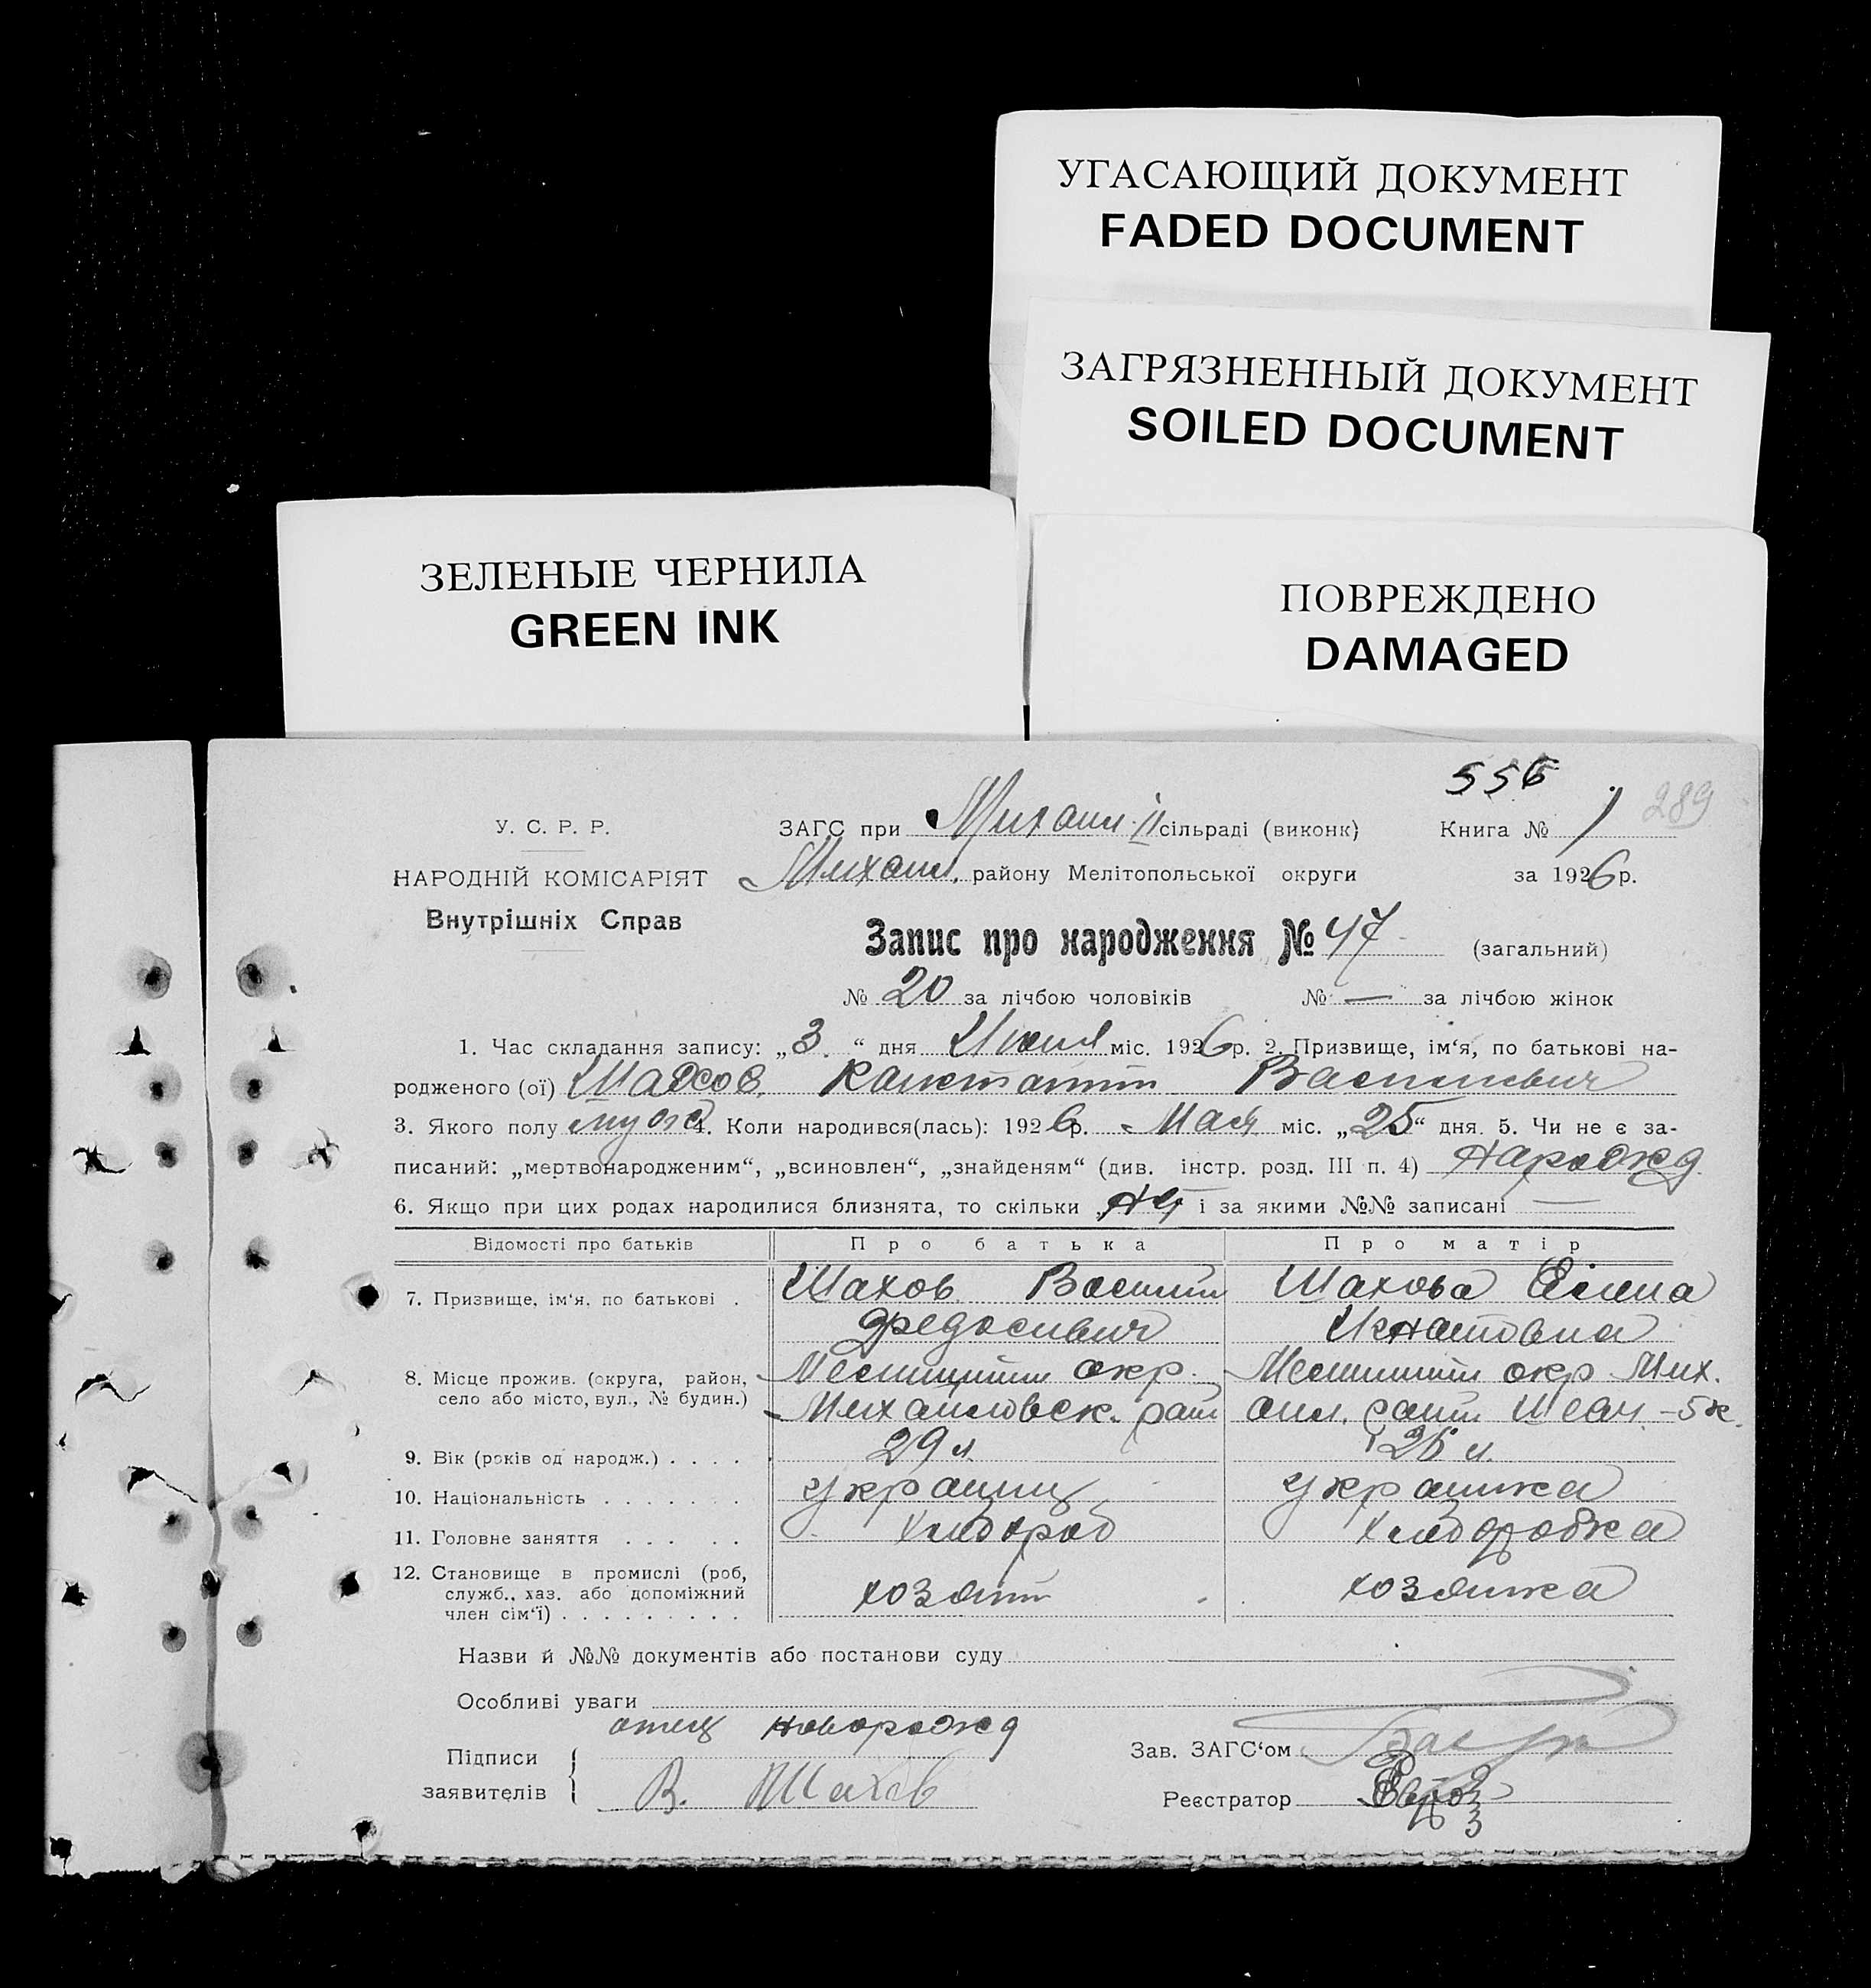 УГАСАЮЩИЙ ДОКУМЕНТ
FADED DOCUMENT
ЗАГРЯЗНЕННЫЙ ДОКУМЕНТ
SOILED DOCUMENT
ЗЕЛЕНЫЕ ЧЕРНИЛА
GREEN INK
ПОВРЕЖДЕНО
DAMAGED
556
289
У. С. Р. Р.
НАРОДНІЙ КОМІСАРІЯТ
Внутрішніх Справ
ЗАГС при Михайл. II сільраді (виконк) Книга № 1
Михайл. району Мелітопольської округи за 1926 р.
Запис про народження № 47 (загальний)
№ 20 за лічбою чоловіків № — за лічбою жінок
1. Час складання запису: „3“ дня міс. 1926 р. 2. Призвище, ім‘я, по батькові на-
родженого (ої) Шахов Константин Васильевич
3. Якого полу 4. Коли народився(лась): 1926 р. Мая міс. „25“ дня. 5. Чи не є за-
писаний: „мертвонародженим“, „всиновлен“, „знайденям“ (див. інстр. розд. III п. 4) Нарожд
6. Якщо при цих родах народилися близнята, то скільки і за якими №№ записані —
Відомості про батьків Про батька Про матір
7. Призвище, ім‘я, по батькові . Шахов Василий Шахова Елена
Федосиевич Игнатовна
8. Місце прожив. (округа, район, окр. окр Мих.
село або місто, вул., № будин.) Михайловск. район
9. Вік (років од народж.) . . . . . 29 л. 26 л.
10. Національність . . . . . . . украинц украинка
11. Головне заняття . . . . . хлебороб хлеборобка
12. Становище в промислі (роб,
служб., хаз. або допоміжний хозяин хозяйка
член сім‘ї) . . . . . . . . .
Назви й №№ документів або постанови суду
Особливі уваги
отец новорожд
Підписи
заявителів В. Шахов
Зав. ЗАГС‘ом
Реєстратор